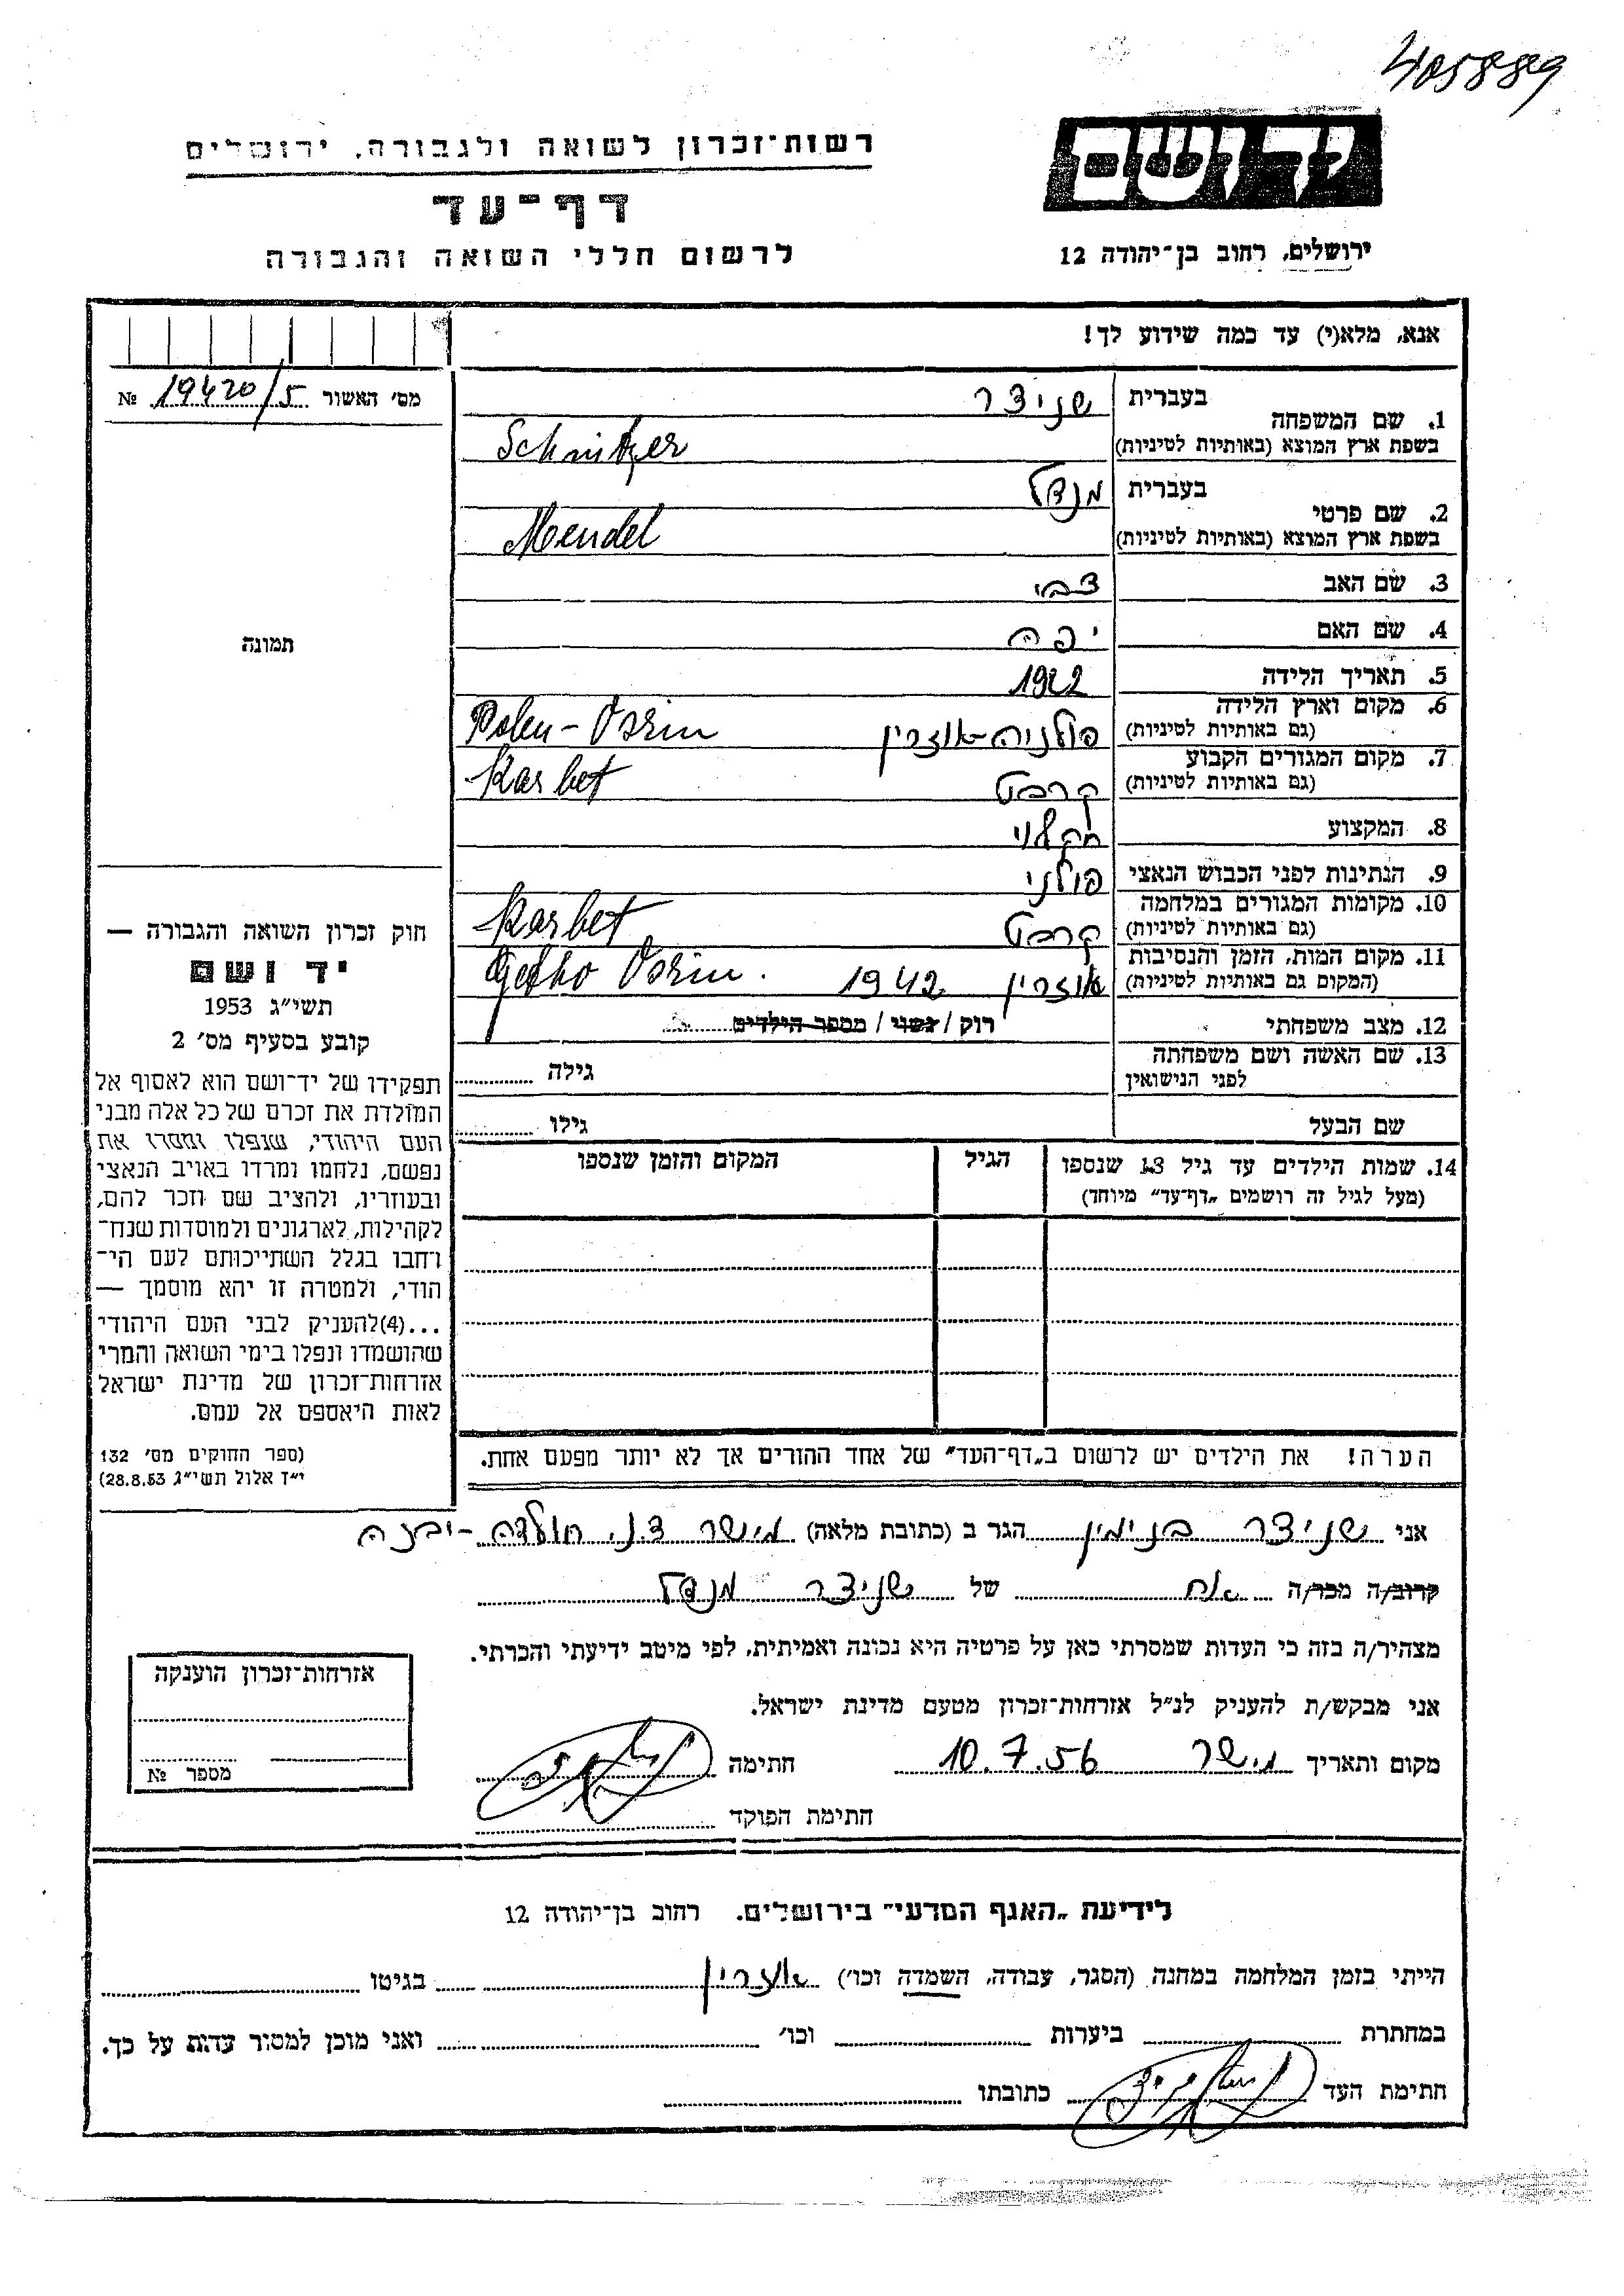 405889
יד ושם
ירושלים, רחוב בן־יהודה 12
רשות־זכרון לשואה ולגבורה, ירושלים
דף־עד
לרשום חללי השואה והגבורה
אנא, מלא(י) עד כמה שידוע לך!
מס׳ האשור 19420/5 №
1. שם המשפחה בעברית שניצר
בשפת ארץ המוצא (באותיות לטיניות) Schnitzer
2. שם פרטי בעברית מנדל
בשפת ארץ המוצא (באותיות לטיניות) Mendel
3. שם האב צבי
4. שם האם יפה
תמונה
5. תאריך הלידה 1922
6. מקום וארץ הלידה פולניה-אוזרין Polen - Osrin
(גם באותיות לטיניות)
7. מקום המגורים הקבוע קרבט Karbet
(גם באותיות לטיניות)
8. המקצוע חקלאי
9. הנתינות לפני הכבוש הנאצי פולני
10. מקומות המגורים במלחמה קרבט Karbet
(גם באותיות לטיניות)
11. מקום המות, הזמן והנסיבות אוזרין 1942 Osrin.
(המקום גם באותיות לטיניות)
12. מצב משפחתי רוק / נשוי / מספר הילדים
13. שם האשה ושם משפחתה גילה
לפני הנישואין
שם הבעל גילו
14. שמות הילדים עד גיל 13 שנספו הגיל המקום והזמן שנספו
(מעל לגיל זה רושמים „דף־עד״ מיוחד)
חוק זכרון השואה והגבורה —
יד ושם
תשי״ג 1953
קובע בסעיף מס׳ 2
תפקידו של יד־ושם הוא לאסוף אל
המולדת את זכרם של כל אלה מבני
העם היהודי, שנפלו ומסרו את
נפשם, נלחמו ומרדו באויב הנאצי
ובעוזריו, ולהציב שם וזכר להם,
לקהילות, לארגונים ולמוסדות שנח־
רחבו בגלל השתייכותם לעם הי־
הודי, ולמטרה זו יהא מוסמך —
...(4)להעניק לבני העם היהודי
שהושמדו ונפלו בימי השואה והמרי
אזרחות־זכרון של מדינת ישראל
לאות היאספם אל עמם.
(ספר החוקים מס׳ 132
י״ז אלול תשי״ג 28.8.53)
הערה! את הילדים יש לרשום ב„דף־העד״ של אחד ההורים אך לא יותר מפעם אחת.
אני שניצר בנימין הגר ב (כתובת מלאה) מישר ד.נ. חולדה - יבנה
קרוב/ה מכר/ה אח של שניצר מנדל
מצהיר/ה בזה כי העדות שמסרתי כאן על פרטיה היא נכונה ואמיתית, לפי מיטב ידיעתי והכרתי.
אני מבקש/ת להעניק לנ״ל אזרחות־זכרון מטעם מדינת ישראל.
מקום ותאריך מישר 10.7.56 חתימה
חתימת הפוקד
אזרחות־זכרון הוענקה
מספר №
לידיעת „האגף המדעי״ בירושלים. רחוב בן־יהודה 12
הייתי בזמן המלחמה במחנה (הסגר, עבודה, השמדה וכו׳) אוזרין בגיטו
במחתרת ביערות וכו׳ ואני מוכן למסור עדות על כך.
חתימת העד כתובתו